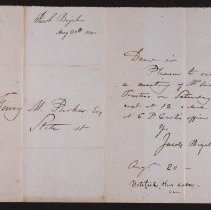 Jacob Bigelow
Aug 20th
Henry M. Parker Esq
State st
Dear sir
Please to call
a meeting of Mt Au
Trustees on Saturday
next at 12 o'clock
at G. P. Curtis office
Yr
Jacob Bigelow
Aug 20 —
Notified this date